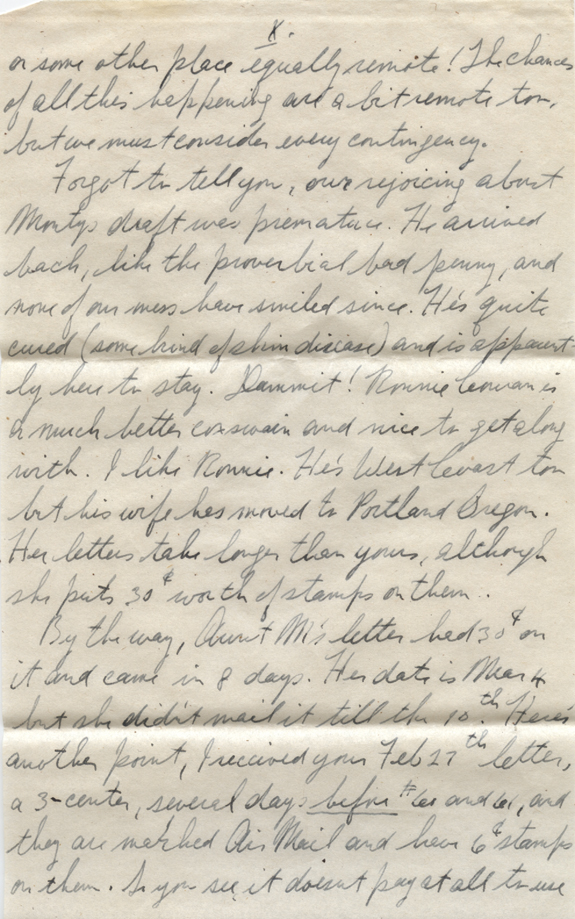 X.
or some other place equally remote! The chances
of all this happening are a bit remote too,
but we must consider every contingency.
Forgot to tell you, our rejoicing about
Montys draft was premature. He arrived
back, like the proverbial bad penny, and
none of our mess have smiled since. He's quite
cured (some kind of skin disease) and is apparent-
ly here to stay. Dammit! Ronnie Cowan is
a much better coxswain and nice to get along
with. I like Ronnie. He's West Coast too
but his wife has moved to Portland Oregon.
Her letters take longer than yours, although
she puts 30¢ worth of stamps on them.
By the way, Aunt M's letter had 30¢ on
it and came in 8 days. Her date is Mar 4
but she didn't mail it till the 10th. Here's
another point, I received your Feb 27th letter,
a 3-center, several days before # 60 and 61, and
they are marked Air Mail and have 6¢ stamps
on them. So you see, it doesn't pay at all to use